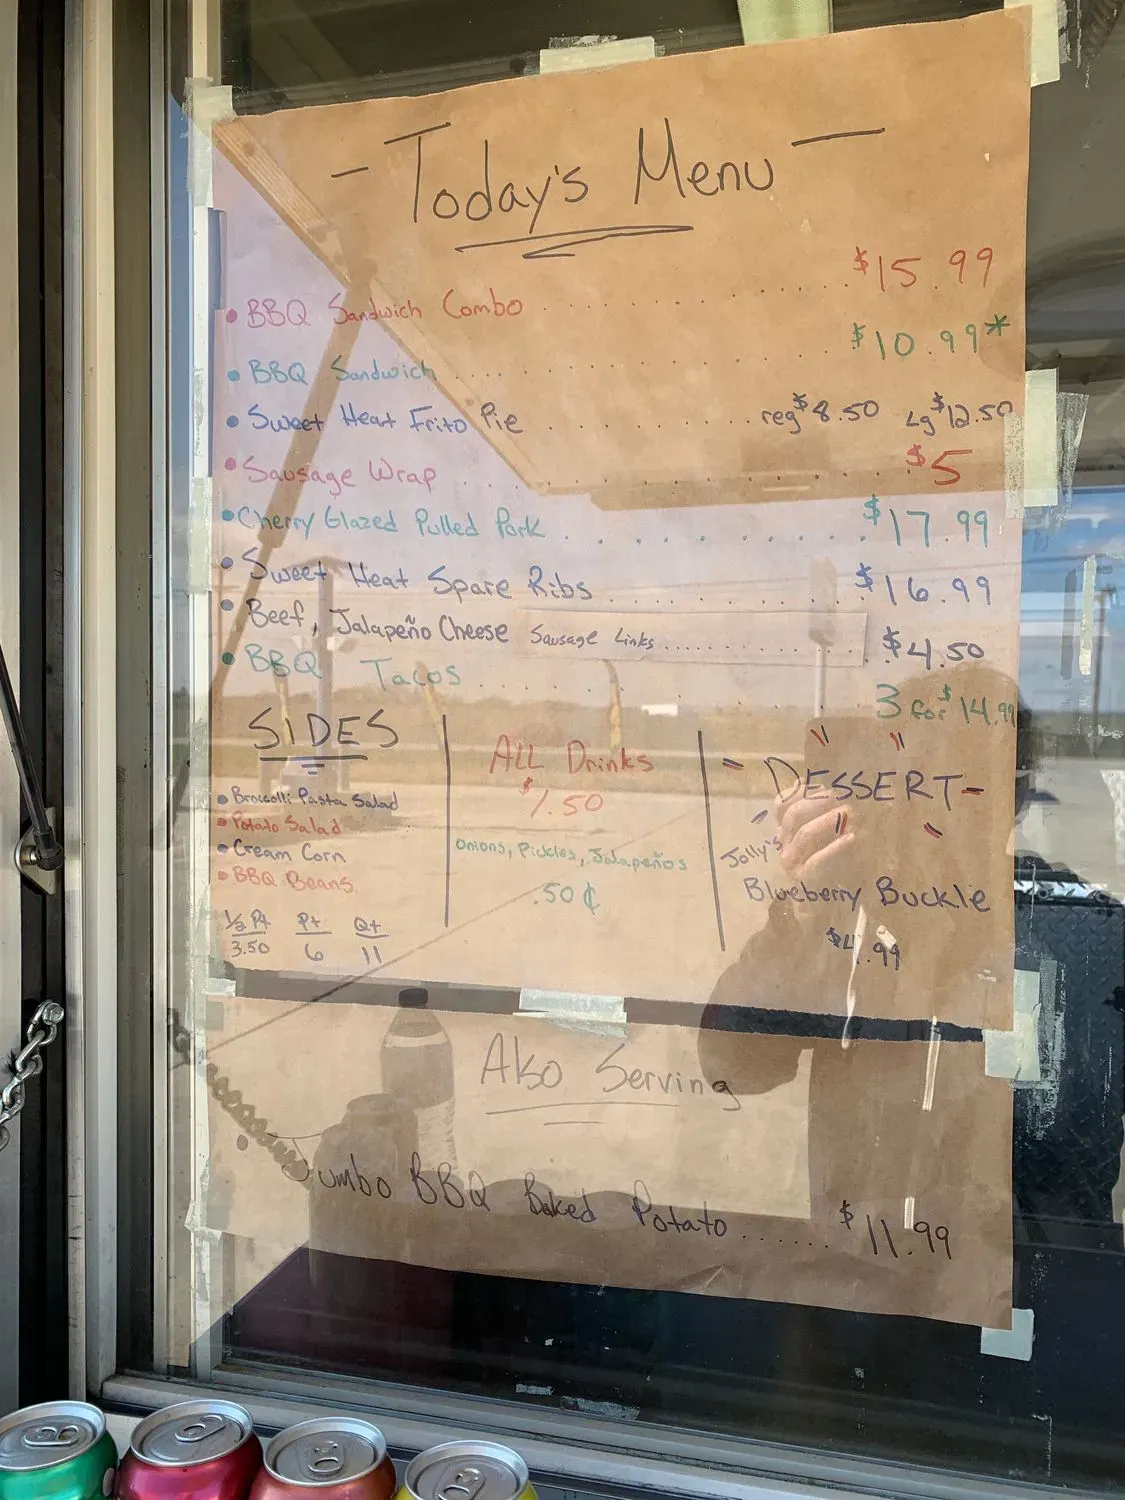 - Today's Menu -
• BBQ Sandwich Combo ............ $15.99
• BBQ Sandwich ............ $10.99*
• Sweet Heat Frito Pie ............ reg $8.50 Lg $12.50
• Sausage Wrap ............ $5
• Cherry Glazed Pulled Pork ............ $17.99
• Sweet Heat Spare Ribs ............ $16.99
• Beef, Jalapeño Cheese Sausage Links ............ $4.50
• BBQ Tacos ............ 3 for $14.99
SIDES
• Broccolli Pasta Salad
• Potato Salad
• Cream Corn
• BBQ Beans
1/2 Pt Pt Qt
3.50 6 11
ALL Drinks
$1.50
Onions, Pickles, Jalapeños
.50¢
- DESSERT -
Jolly's
Blueberry Buckle
$4.99
Also Serving
• Jumbo BBQ Baked Potato ...... $11.99